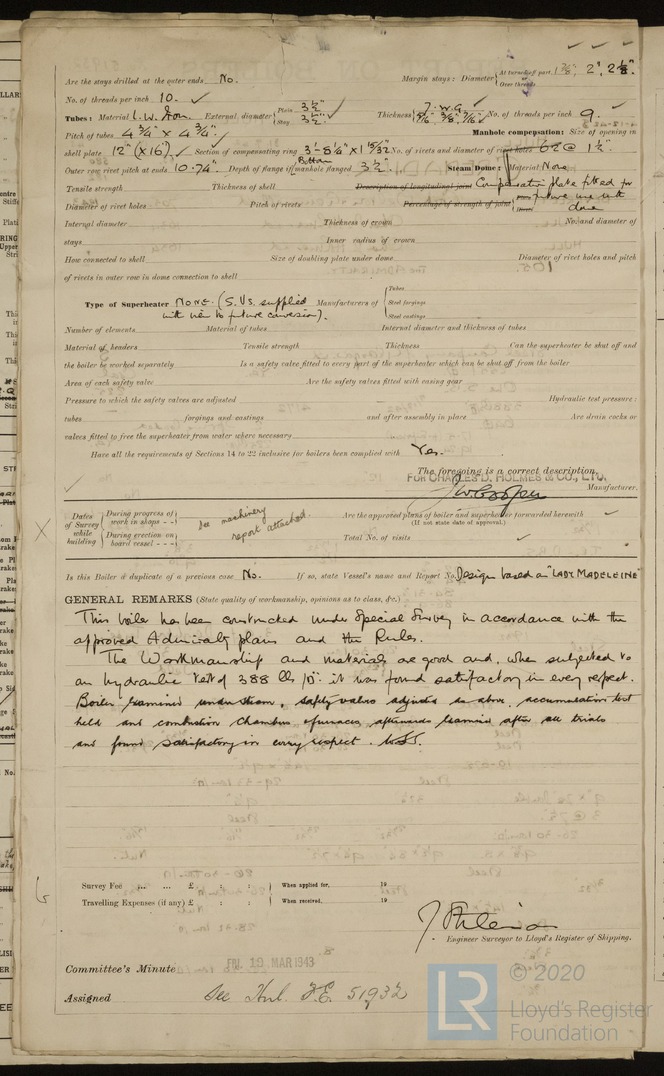 Are the stays drilled at the outer ends No. Margin stays: Diameter { At turned off part, 1 7/8", 2", 2 1/8".
Over threads
No. of threads per inch 10.
Tubes: Material L.W. Iron. External diameter { Plain 3 1/2" Thickness { I.W.G. No. of threads per inch 9.
Stay 3 1/2" 5/16" 3/8", 7/16"
Pitch of tubes 4 3/4" x 4 3/4". Manhole compensation: Size of opening in
shell plate 12" (x 16") Section of compensating ring No. of rivets and diameter of rivet holes 62 @ 1 1/2".
Outer row rivet pitch at ends 10.74". Depth of flange if manhole flanged Bottom 3 1/2". Steam Dome: Material None
Tensile strength Thickness of shell Description of longitudinal joint Compensation plate fitted for
Diameter of rivet holes Pitch of rivets Percentage of strength of joint future use with
dome
Internal diameter Thickness of crown No. and diameter of
stays Inner radius of crown
How connected to shell Size of doubling plate under dome Diameter of rivet holes and pitch
of rivets in outer row in dome connection to shell
Type of Superheater NONE. (S.Vs. supplied Manufacturers of { Tubes
with view to future conversion). Steel forgings
Steel castings
Number of elements Material of tubes Internal diameter and thickness of tubes
Material of headers Tensile strength Thickness Can the superheater be shut off and
the boiler be worked separately Is a safety valve fitted to every part of the superheater which can be shut off from the boiler
Area of each safety valve Are the safety valves fitted with easing gear
Pressure to which the safety valves are adjusted Hydraulic test pressure:
tubes forgings and castings and after assembly in place Are drain cocks or
valves fitted to free the superheater from water where necessary
Have all the requirements of Sections 14 to 22 inclusive for boilers been complied with Yes.
The foregoing is a correct description,
FOR CHARLES D. HOLMES & CO., LTD.
Manufacturer.
Dates of Survey while building { During progress of work in shops - - See machinery Are the approved plans of boiler and superheater forwarded herewith
(If not state date of approval.)
During erection on board vessel - - - report attached. Total No. of visits
Is this Boiler a duplicate of a previous case No. If so, state Vessel's name and Report No. Design based on "LADY MADELEINE"
GENERAL REMARKS (State quality of workmanship, opinions as to class, &c.)
This boiler has been constructed under Special Survey in accordance with the
approved Admiralty plans and the Rules.
The Workmanship and materials are good and, when subjected to
an hydraulic test of 388 lbs/□" it was found satisfactory in every respect.
Boiler examined under steam, safety valves adjusted as above, accumulation test
held and combustion chambers & furnaces afterwards examined after all trials
and found satisfactory in every respect.
Survey Fee ... ... £ : : When applied for, 19
Travelling Expenses (if any) £ : : When received, 19
Engineer Surveyor to Lloyd's Register of Shipping.
Committee's Minute FRI. 19 MAR 1943
Assigned See Hul. F.E. 51932
LR © 2020
Lloyd's Register
Foundation